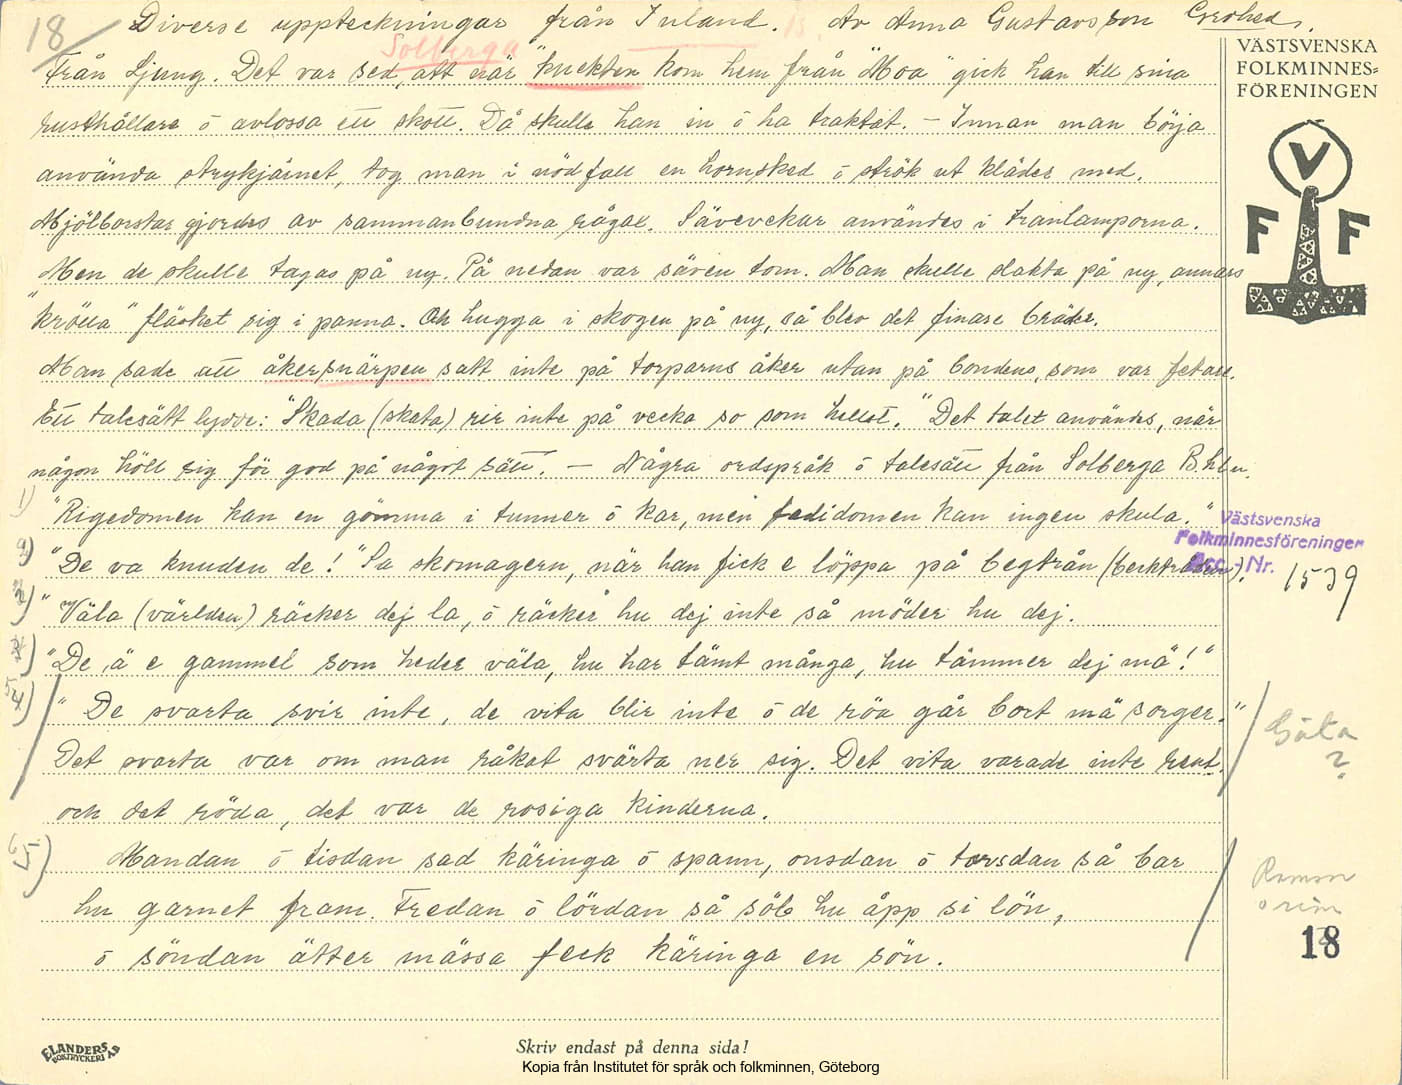 18 Diverse uppteckningar från Inland. B. Av Anna Gustavsson
Solberga
VÄSTSVENSKA
FOLKMINNES=
FÖRENINGEN
Från Ljung. Det var sed, att när "knekten kom hem från "Moa" gick han till sina
rusthållare ö avlossa ett skott. Då skulle han in ö ha traktat. – Innan man börja
använda strykjärnet, tog man i nödfall en hornsked ö strök ut kläder med.
Mjölborstar gjordes av sammanbundna rågax. Sävevekar användes i tranlamporna.
Men de skulle tagas på ny. På nedan var säven tom. Man skulle slakta på ny, annars
"krölla" fläsket sig i panna. Ok hugga i skogen på ny, så blev det finare bräder.
Man sade att åkersnärpen satt inte på torparns åker utan på bondens, som var fetare.
Ett talesätt lydde: "Skada (skata) rir inte på vecka so som hellst." Det talet användes, när
någon höll sig för god på något sätt. – Några ordspråk ö talesätt från Solberga B. län.
1) "Rigedomen kan en gömma i tunner ö kar, men fadidomen kan ingen skula."
2) "De va knuden de!" Sa skomagern, när han fick e löppa på begtrån (becktråden).
3) "Väla (världen) räcker dej la, ö räcker hu dej inte så möder hu dej.
4) "De ä e gammel som heder väla, hu har tämt många, hu tämmer dej mä!"
5) "De svarta svir inte, de vita blir inte ö de röa går bort mä sorger."
Det svarta var om man råkat svärta ner sig. Det vita varade inte rent.
och det röda, det var de rosiga kinderna.
6) Mandan ö tisdan sad käringa ö spann, onsdan ö torsdan så bar
hu garnet fram. Fredan ö lördan så söb hu åpp si lön,
ö söndan ätter mässa feck käringa en sön.
V
F F
Västsvenska
Folkminnesföreningen
Acc.-Nr. 1539
Gåta
?
Ramsor
o rim
18
ELANDERS
BOKTRYCKERI AB
Skriv endast på denna sida!
Kopia från Institutet för språk och folkminnen, Göteborg